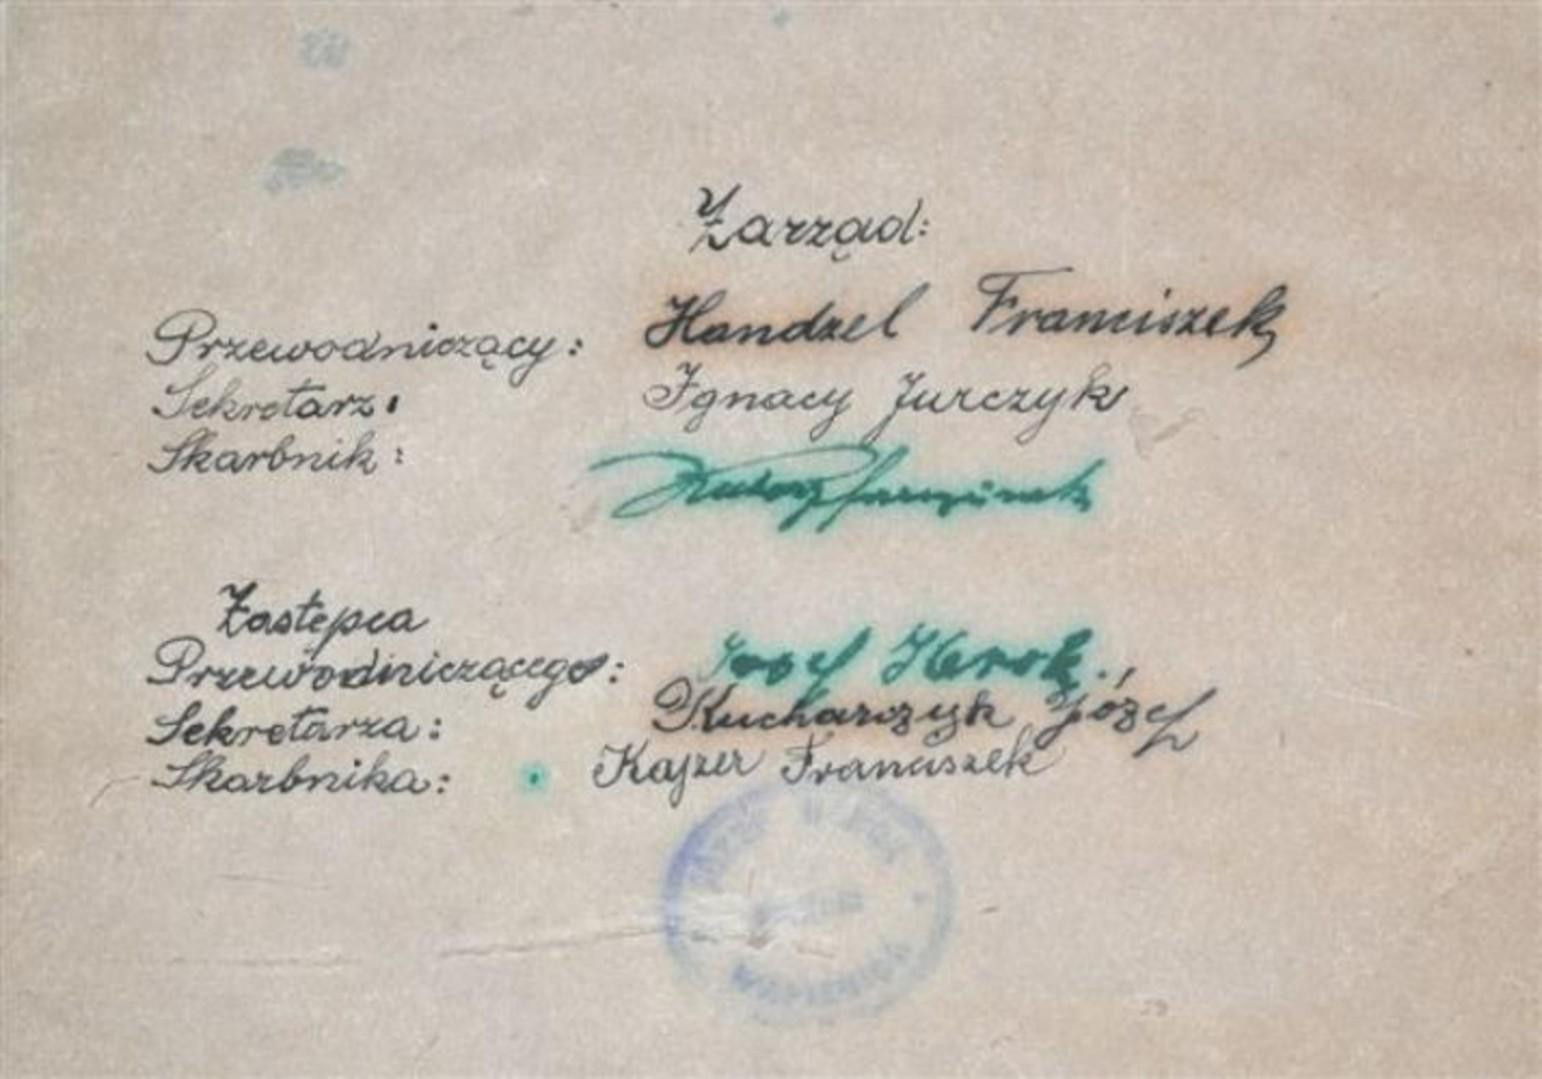 Zarząd:
Przewodniczący: Handzel Franciszek
Sekretarz: Ignacy Jurczyk
Skarbnik:
Zastępca
Przewodniczącego: Józef Herok.
Sekretarza: Kucharczyk Józef
Skarbnika: Kajzer Franciszek
WAPIENICA